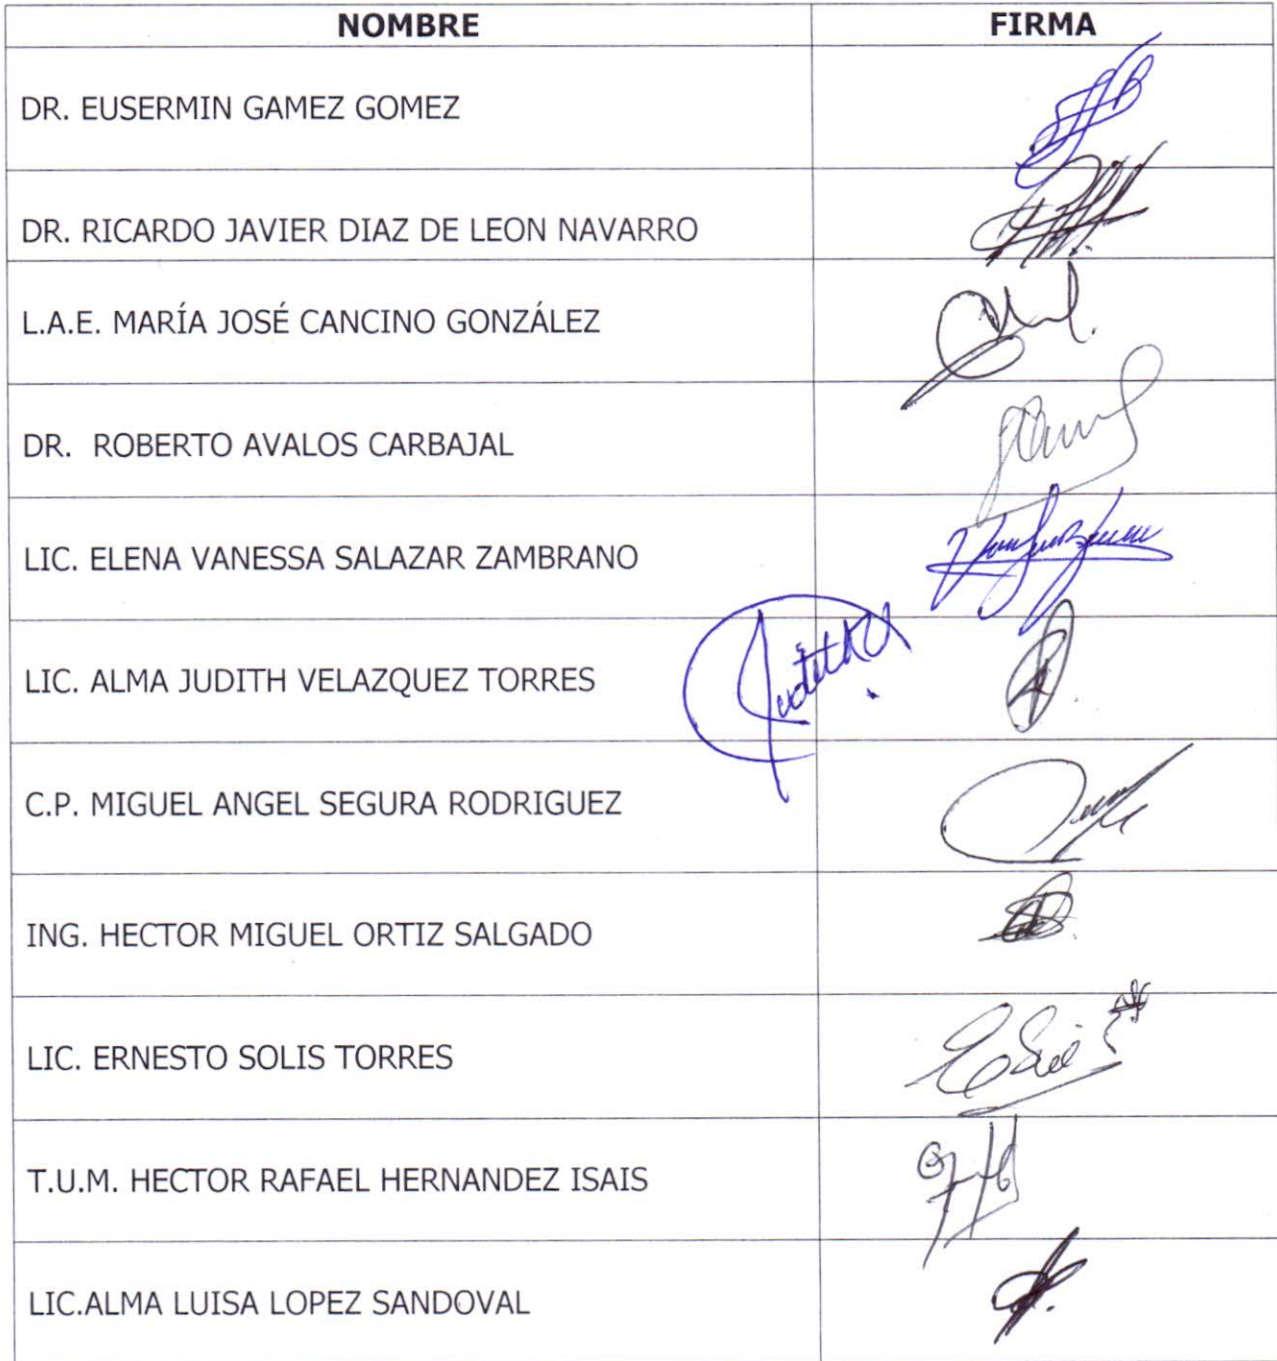 NOMBRE FIRMA
DR. EUSERMIN GAMEZ GOMEZ
DR. RICARDO JAVIER DIAZ DE LEON NAVARRO
L.A.E. MARÍA JOSÉ CANCINO GONZÁLEZ
DR. ROBERTO AVALOS CARBAJAL
LIC. ELENA VANESSA SALAZAR ZAMBRANO
LIC. ALMA JUDITH VELAZQUEZ TORRES
C.P. MIGUEL ANGEL SEGURA RODRIGUEZ
ING. HECTOR MIGUEL ORTIZ SALGADO
LIC. ERNESTO SOLIS TORRES
T.U.M. HECTOR RAFAEL HERNANDEZ ISAIS
LIC.ALMA LUISA LOPEZ SANDOVAL